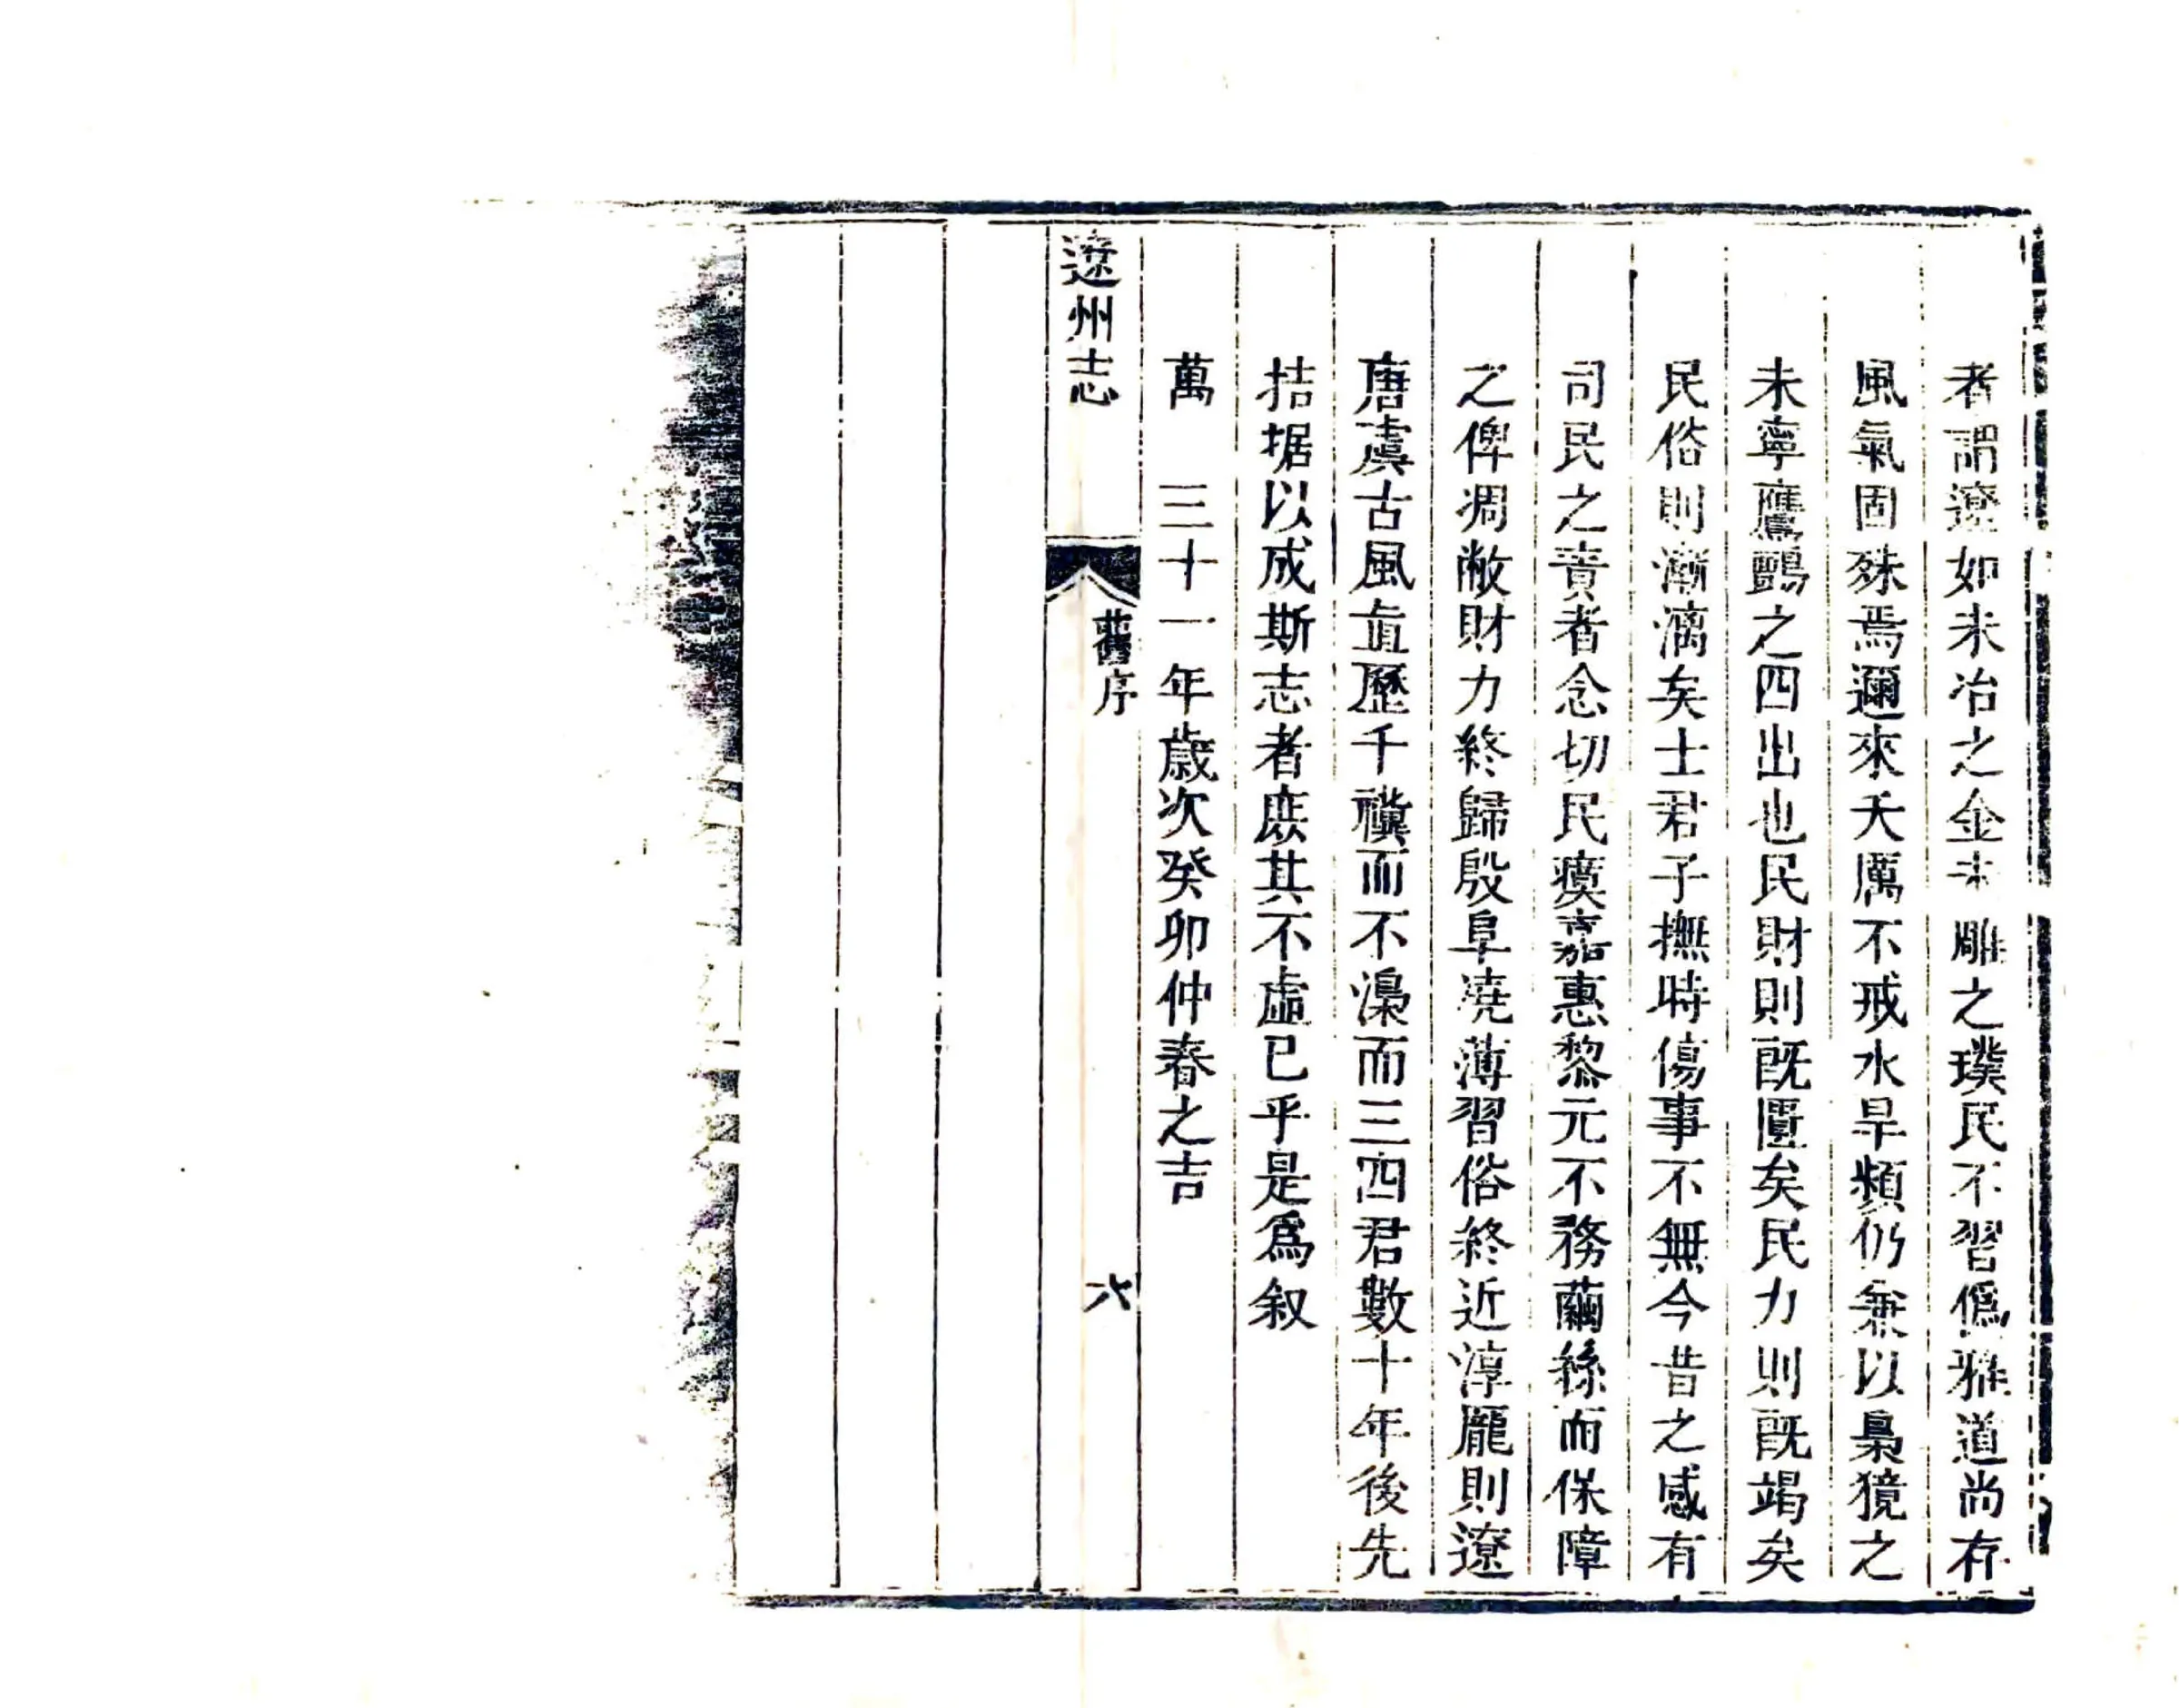 者謂遼如未冶之金未雕之璞民不習僞雅道尚存
風氣固殊焉邇來夭厲不戒水旱頻仍兼以梟獍之
未寧鷹鸇之四出也民財則既匱矣民力則既竭矣
民俗則漸漓矣士君子撫時傷事不無今昔之感有
司民之責者念切民瘼嘉惠黎元不務繭絲而保障
之俾凋敝財力終歸殷阜澆薄習俗終近淳龐則遼
唐虞古風直歷千禩而不澆而三四君數十年後先
拮据以成斯志者庶其不虛已乎是爲叙
萬　三十一年歲次癸卯仲春之吉
遼州志　舊序　六